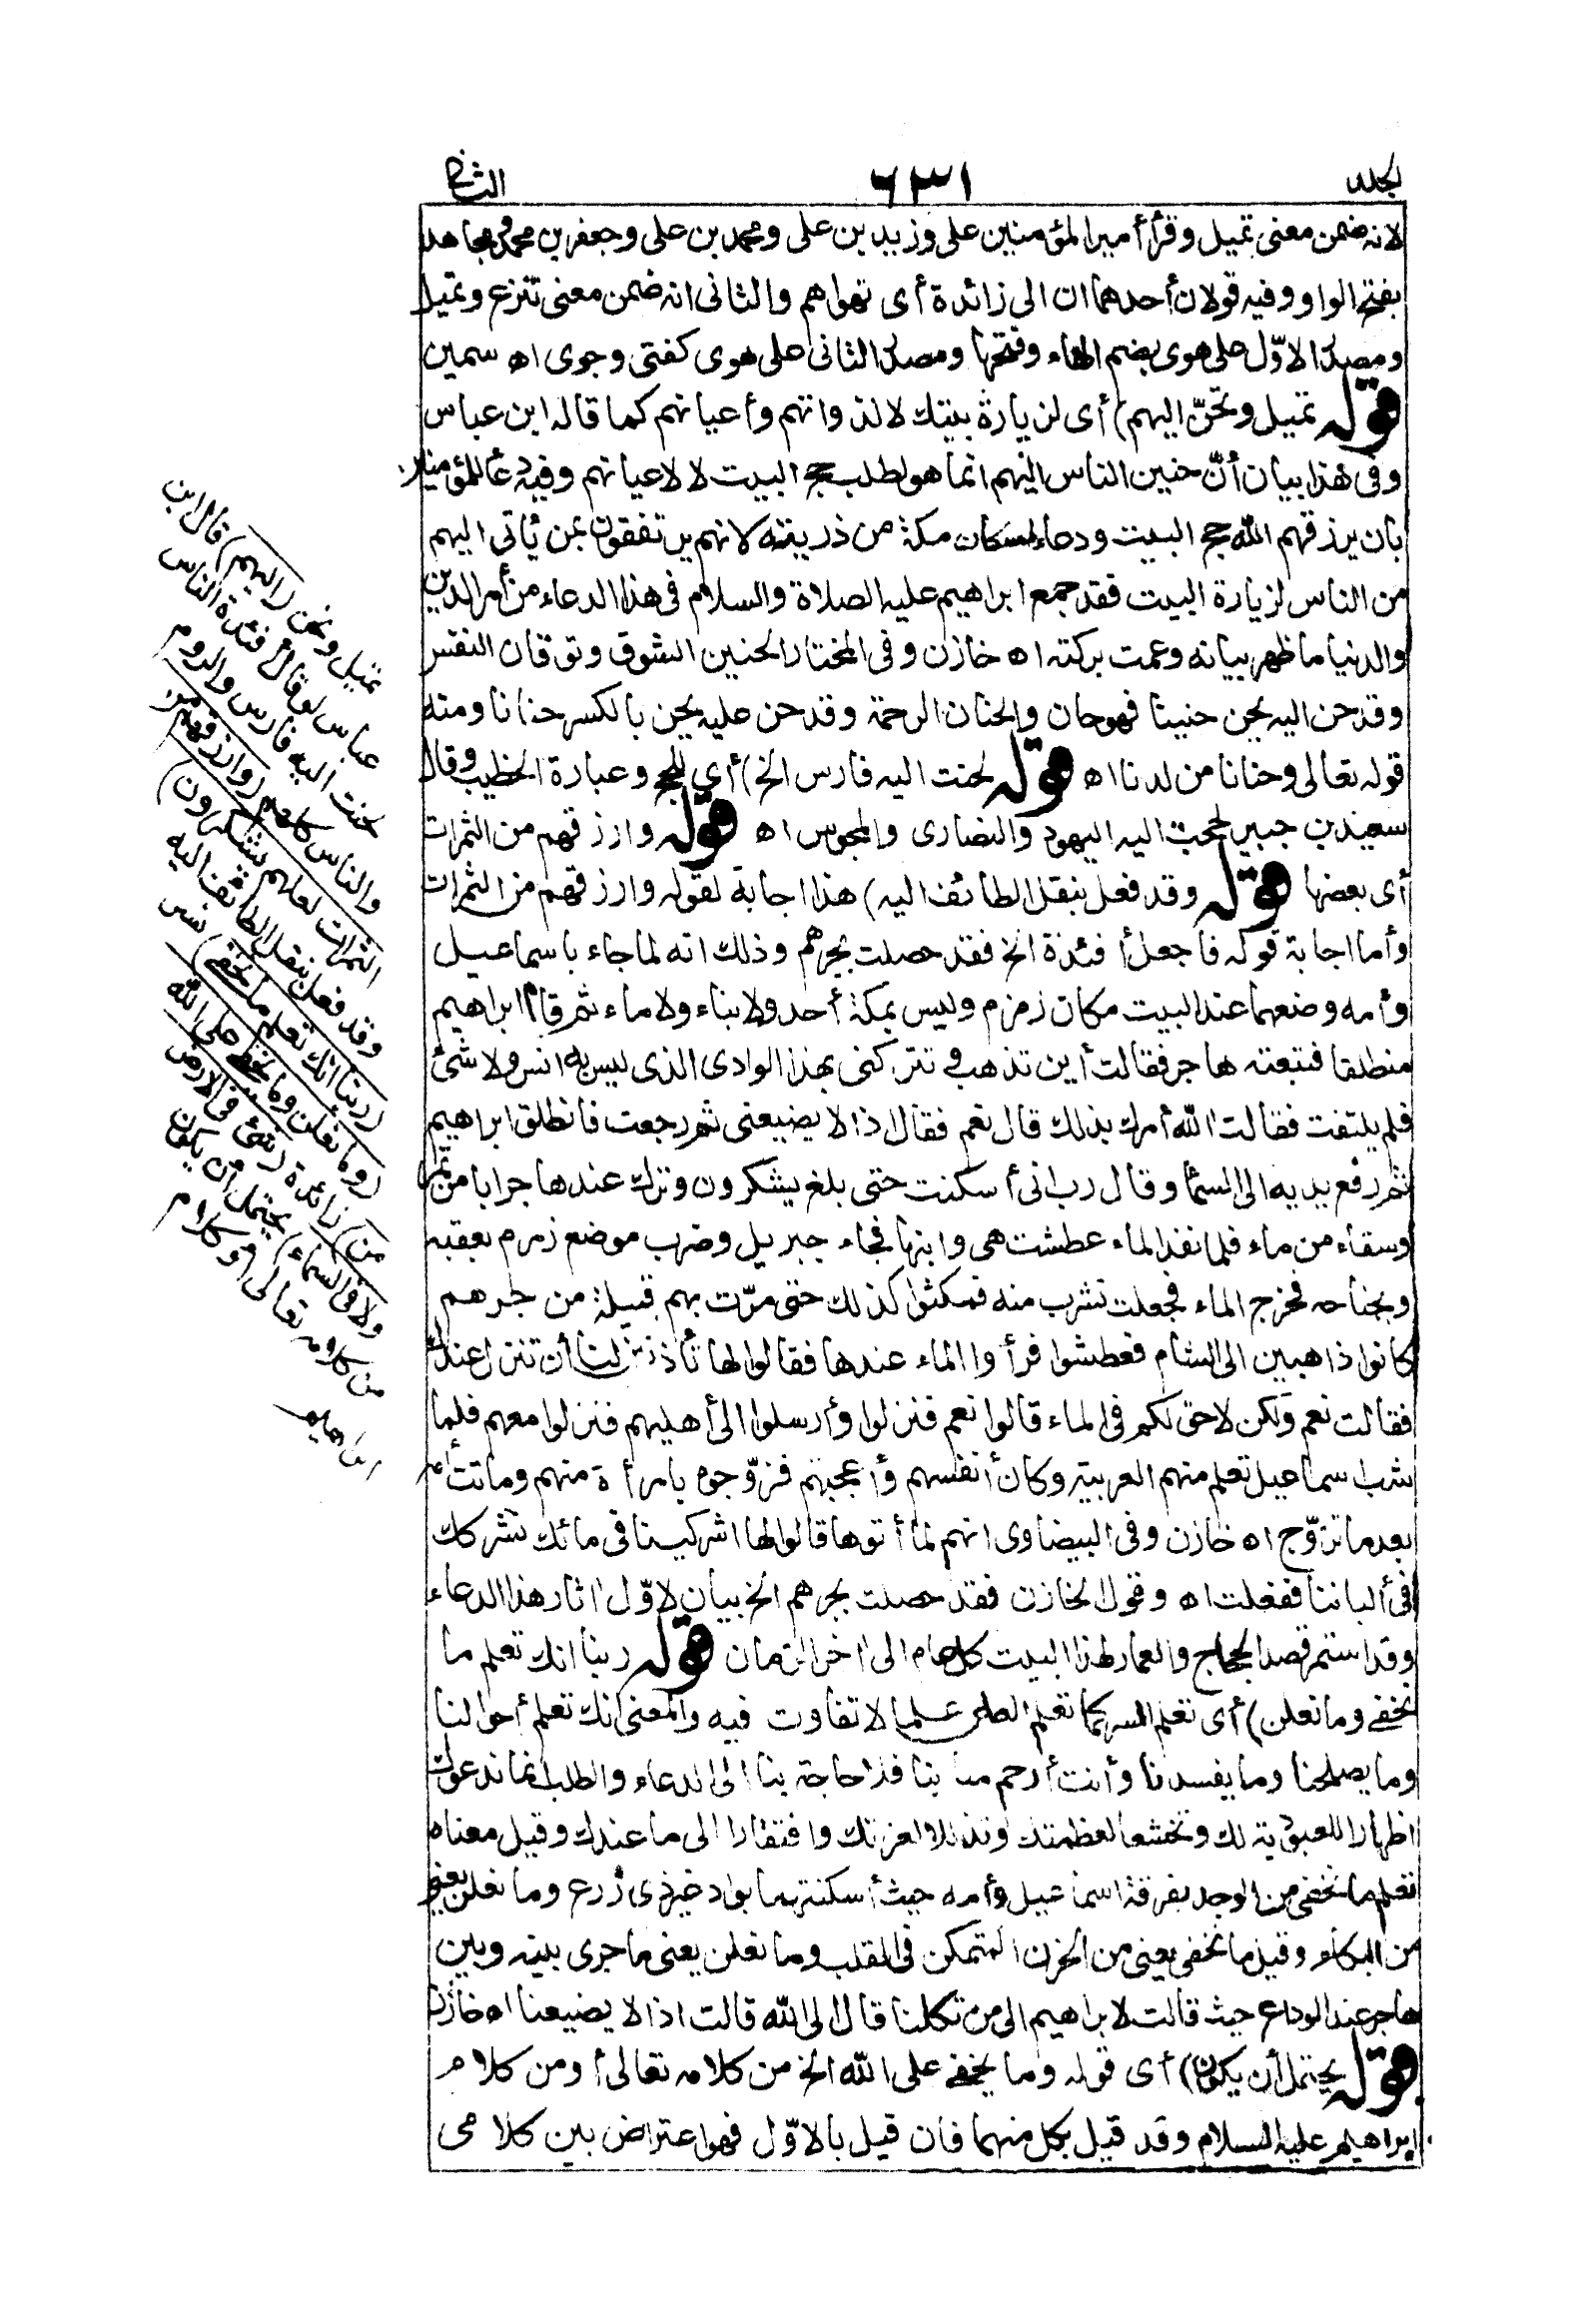 الجلد
٦٣١
الثانى
لانه ضمن معنى تميل وقرأ أمير المؤمنين على وزيد بن على ومحمد بن على وجعفر بن محمد ومجاهد
بفتح الواو وفيه قولان أحدهما ان الى زائدة أى تهواهم والثانى انه ضمن معنى تنزع وتميل
ومصدر الاوّل على هوى بضم الهاء وفتحها ومصدر الثانى على هوى كفتى وجوى اه سمين
قوله تميل وتحنّ اليهم) أى لزيارة بيتك لا لذواتهم وأعيانهم كما قاله ابن عباس
وفى هذا بيان أنّ حنين الناس اليهم انما هو لطلب حج البيت لا لاعيانهم وفيه دعاء للمؤمنين
بان يرزقهم الله حج البيت ودعاء لسكان مكة من ذريته لانهم يرتفقون بمن يأتى اليهم
من الناس لزيارة البيت فقد جمع ابراهيم عليه الصلاة والسلام فى هذا الدعاء من أمر الدين
والدنيا ما ظهر بيانه وعمت بركته اه خازن وفى المختار الحنين الشوق وتوقان النفس
وقد حن اليه يحن حنينا فهو حان والحنان الرحمة وقد حن عليه يحن بالكسر حنانا ومنه
قوله تعالى وحنانا من لدنا اه قوله لحنت اليه فارس الخ) أى للحج وعبارة الخطيب وقال
سعيد بن جبير لحجت اليه اليهود والنصارى والمجوس اه قوله وارزقهم من الثمرات
أى بعضها قوله وقد فعل بنقل الطائف اليه) هذا اجابة لقوله وارزقهم من الثمرات
وأما اجابة قوله فاجعل أفئدة الخ فقد حصلت بجرهم وذلك انه لما جاء باسماعيل
وأمه وضعهما عند البيت مكان زمزم وليس بمكة أحد ولا بناء ولا ماء ثم قام ابراهيم
منطلقا فتبعته هاجر فقالت أين تذهب وتتركنى بهذا الوادى الذى ليس به انس ولا شئ
فلم يلتفت فقالت الله أمرك بذلك قال نعم فقال اذا لا يضيعنى ثم رجعت فانطلق ابراهيم
ثم رفع يديه الى السماء وقال رب انى أسكنت حتى بلغ يشكرون وترك عندها جرابا من تمر
وسقاء من ماء فلما نفذ الماء عطشت هى وابنها فجاء جبريل وضرب موضع زمزم بعقبه
وبجناحه فخرج الماء فجعلت تشرب منه فمكثوا كذلك حتى مرّت بهم قبيلة من جرهم
كانوا ذاهبين الى الشام فعطشوا فرأوا الماء عندها فقالوا لها تأذنين لنا أن ننزل عندك
فقالت نعم ولكن لا حق لكم فى الماء قالوا نعم فنزلوا وأرسلوا الى أهليهم فنزلوا معهم فلما
شب اسماعيل تعلم منهم العربية وكان أنفسهم وأعجبهم فزوّجوه بامرأة منهم وماتت أمه
بعد ما تزوّج اه خازن وفى البيضاوى انهم لما أتوها قالوا لها اشركينا فى مائك نشركك
فى ألباننا ففعلت اه وقول الخازن فقد حصلت بجرهم الخ بيان لاوّل اثار هذا الدعاء
وقد استمر قصد الحجاج والعمار لهذا البيت كل عام الى اخر الزمان قوله ربنا انك تعلم ما
نخفى وما نعلن) أى تعلم السر كما تعلم العلن علما لا تفاوت فيه والمعنى انك تعلم أحوالنا
وما يصلحنا وما يفسدنا وأنت أرحم منا بنا فلا حاجة بنا الى الدعاء والطلب انما ندعوك
اظهارا للعبودية لك وتخشعا لعظمتك وتذللا لعزتك وافتقارا الى ما عندك وقيل معناه
تعلم ما نخفى من الوجد بفرقة اسماعيل وأمه حيث أسكنتهما بواد غير ذى زرع وما نعلن يعنى
من البكاء وقيل ما نخفى يعنى من الحزن المتمكن فى القلب وما نعلن يعنى ما جرى بينه وبين
هاجر عند الوداع حيث قالت لابراهيم الى من تكلنا قال الى الله قالت اذا لا يضيعنا اه خازن
قوله يحتمل أن يكون) أى قوله وما يخفى على الله الخ من كلامه تعالى أو من كلام
ابراهيم عليه السلام وقد قيل بكل منهما فان قيل بالاوّل فهو اعتراض بين كلامى
تميل وتحن (اليهم) قال ابن
عباس لو قال أفئدة الناس
لحنت اليه فارس والروم
والناس كلهم (وارزقهم من
الثمرات لعلهم يشكرون)
وقد فعل بنقل الطائف اليه
(ربنا انك تعلم ما نخفى) نسر
(وما نعلن وما يخفى على الله
من) زائدة (شئ فى الارض
ولا فى السماء) يحتمل أن يكون
من كلامه تعالى أو كلام
ابراهيم